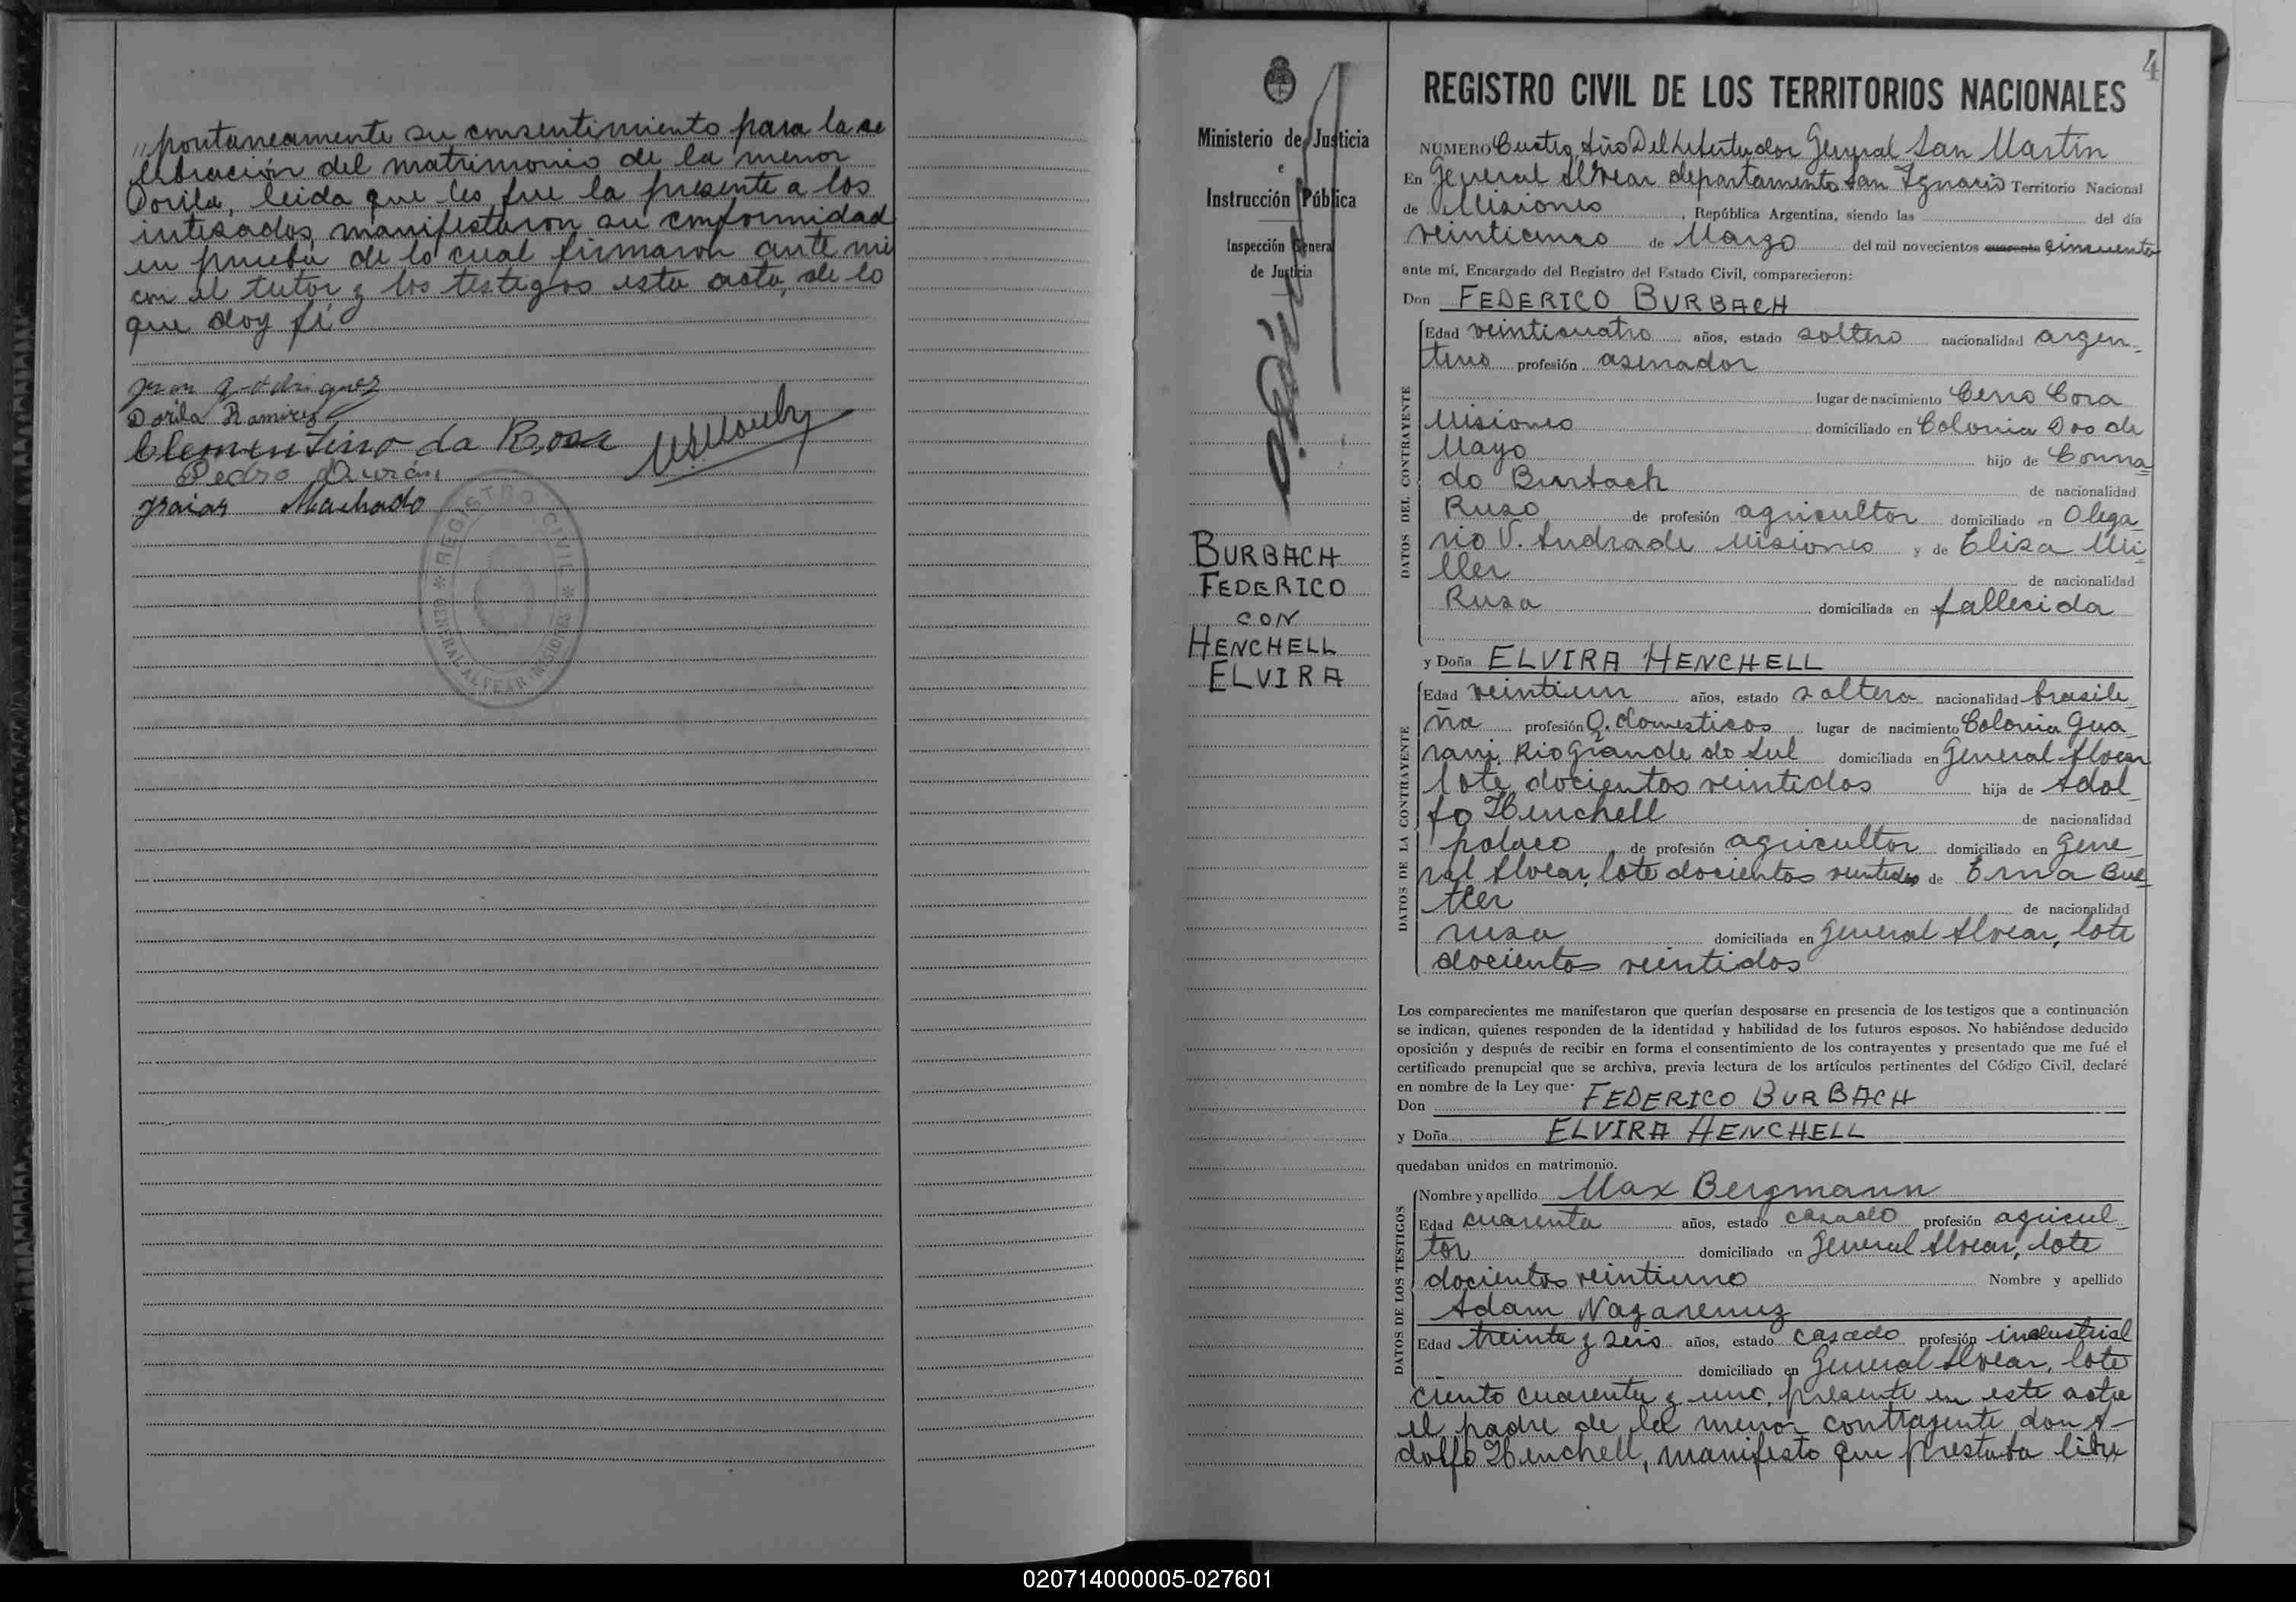 pontaneamente su consentimiento para la se
lebración del matrimonio de la menor
Dorila, leida que les fue la presente a los
intesados, manifestaron su conformidad
en prueba de lo cual firmaron ante mi
con el tutor y los testigos esta acta, de lo
que doy fé
Dorila Ramirez
Clementino da Rosa
Pedro Durán
Machado
REGISTRO CIVIL
GENERAL ALVEAR MISIONES
Ministerio de Justicia
e
Instrucción Pública
Inspección General
de Justicia
BURBACH
FEDERICO
CON
HENCHELL
ELVIRA
4
REGISTRO CIVIL DE LOS TERRITORIOS NACIONALES
NUMERO Cuatro, Año Del Libertador General San Martin
En General Alvear departamento San Ignacio Territorio Nacional
de Misiones, República Argentina, siendo las del día
veinticinco de Marzo del mil novecientos cuarenta cincuenta
ante mí, Encargado del Registro del Estado Civil, comparecieron:
Don FEDERICO BURBACH
DATOS DEL CONTRAYENTE
Edad veinticuatro años, estado soltero nacionalidad argen-
tino profesión aserrador
lugar de nacimiento Cerro Cora
Misiones domiciliado en Colonia Dos de
Mayo hijo de Conra
do Burbach de nacionalidad
Ruso de profesión agricultor domiciliado en Olega
rio V. Andrade Misiones y de Elisa Mi
ller de nacionalidad
Rusa domiciliada en fallecida
y Doña ELVIRA HENCHELL
DATOS DE LA CONTRAYENTE
Edad veintiun años, estado soltera nacionalidad brasile
ña profesión Q. domesticos lugar de nacimiento Colonia Gua
rani, Rio Grande do Sul domiciliada en General Alvear
lote docientos veintidos hija de Adol
fo Henchell de nacionalidad
polaco de profesión agricultor domiciliado en Gene
ral Alvear, lote docientos veintidos de Erna Bue
tler de nacionalidad
rusa domiciliada en General Alvear, lote
docientos veintidos
Los comparecientes me manifestaron que querían desposarse en presencia de los testigos que a continuación
se indican, quienes responden de la identidad y habilidad de los futuros esposos. No habiéndose deducido
oposición y después de recibir en forma el consentimiento de los contrayentes y presentado que me fué el
certificado prenupcial que se archiva, previa lectura de los artículos pertinentes del Código Civil, declaré
en nombre de la Ley que·
Don FEDERICO BURBACH
y Doña ELVIRA HENCHELL
quedaban unidos en matrimonio.
DATOS DE LOS TESTIGOS
Nombre y apellido Max Bergmann
Edad cuarenta años, estado casado profesión agricul
tor domiciliado en General Alvear, lote
docientos veintiuno Nombre y apellido
Adam Nazarenuz
Edad treinta y seis años, estado casado profesión industrial
domiciliado en General Alvear, lote
ciento cuarenta y uno, presente en este acto
el padre de la menor contrayente don A-
dolfo Henchell, manifesto que prestaba libre
020714000005-027601